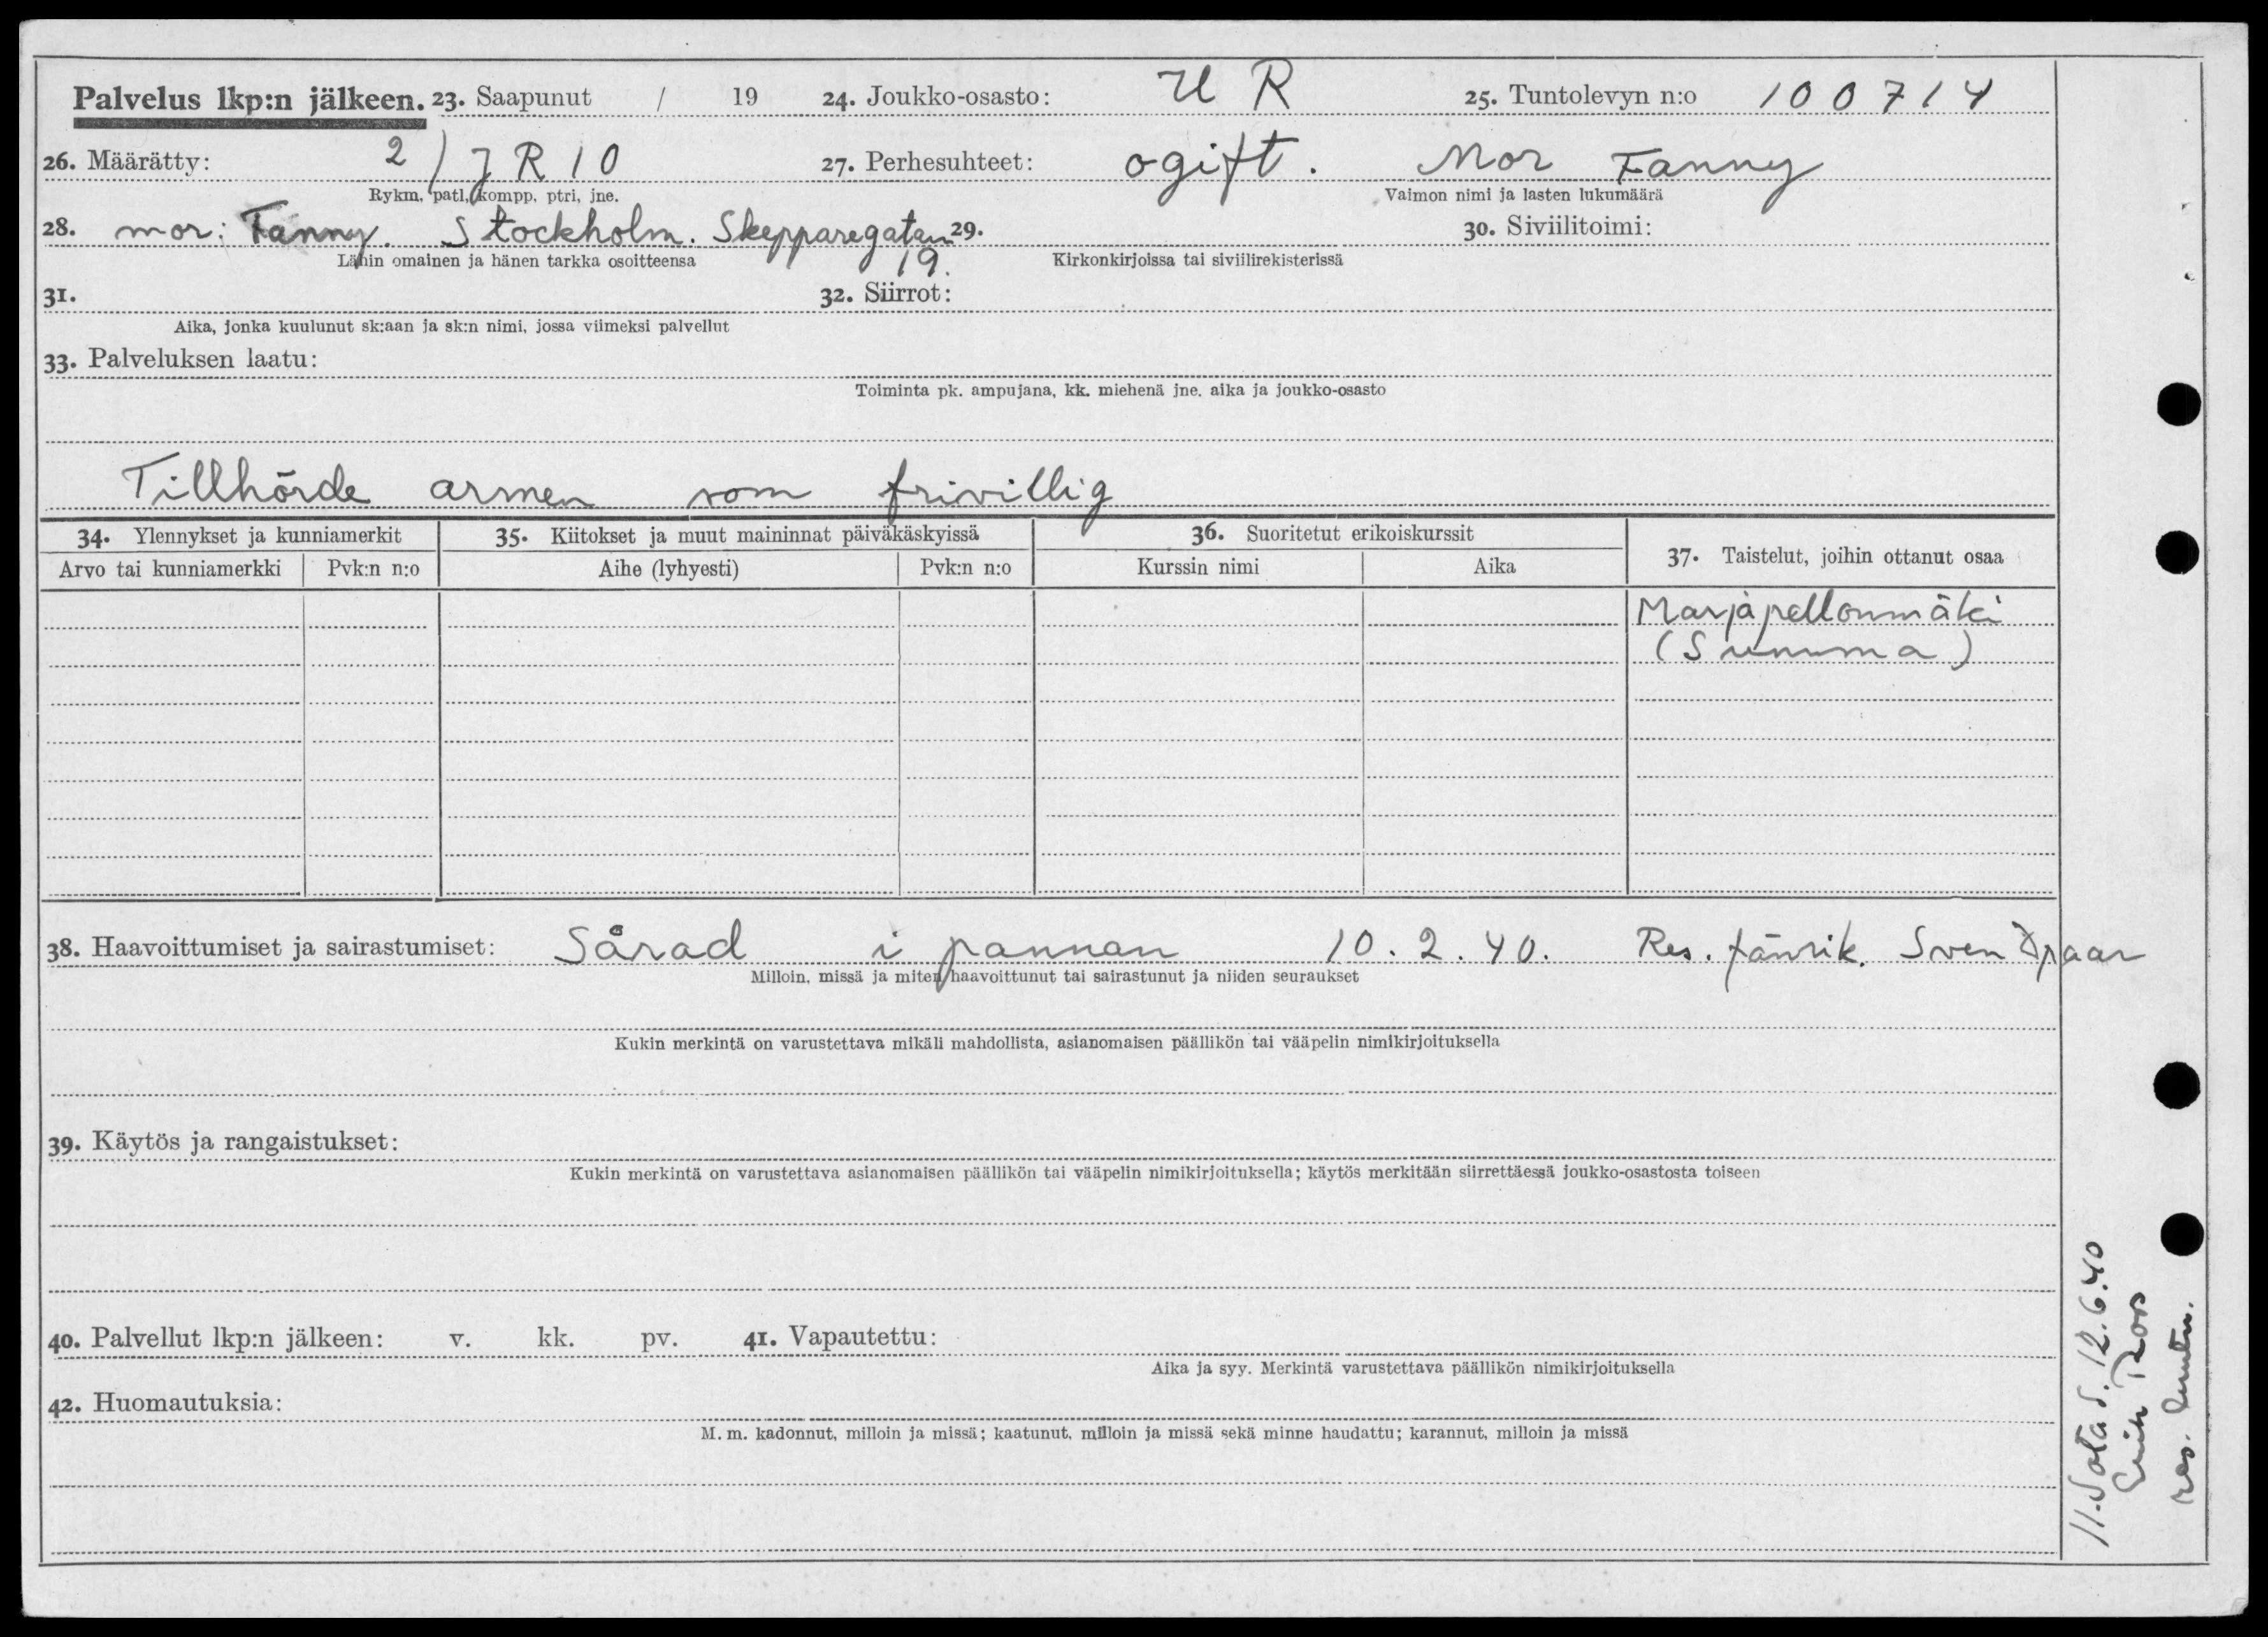 Palvelus lkp:n jälkeen. 23. Saapunut / 19 24. Joukko-osasto: U R 25. Tuntolevyn n:o 100714
26. Määrätty: 2/JR10 27. Perhesuhteet: ogift. Mor Fanny
Rykm, patl, kompp, ptri, jne. Vaimon nimi ja lasten lukumäärä
28. mor: Fanny. Stockholm. Skepparegatan 29. 30. Siviilitoimi:
Lähin omainen ja hänen tarkka osoitteensa 19. Kirkonkirjoissa tai siviilirekisterissä
31. 32. Siirrot:
Aika, jonka kuulunut sk:aan ja sk:n nimi, jossa viimeksi palvellut
33. Palveluksen laatu:
Toiminta pk. ampujana, kk. miehenä jne. aika ja joukko-osasto
Tillhörde armen som frivillig
34. Ylennykset ja kunniamerkit 35. Kiitokset ja muut maininnat päiväkäskyissä 36. Suoritetut erikoiskurssit 37. Taistelut, joihin ottanut osaa
Arvo tai kunniamerkki Pvk:n n:o Aihe (lyhyesti) Pvk:n n:o Kurssin nimi Aika
Marjapellonmäki
(Summa)
38. Haavoittumiset ja sairastumiset: Sårad i pannan 10.2.40. Res. fänrik. Sven
Milloin, missä ja miten haavoittunut tai sairastunut ja niiden seuraukset
Kukin merkintä on varustettava mikäli mahdollista, asianomaisen päällikön tai vääpelin nimikirjoituksella
39. Käytös ja rangaistukset:
Kukin merkintä on varustettava asianomaisen päällikön tai vääpelin nimikirjoituksella; käytös merkitään siirrettäessä joukko-osastosta toiseen
40. Palvellut lkp:n jälkeen: v. kk. pv. 41. Vapautettu:
Aika ja syy. Merkintä varustettava päällikön nimikirjoituksella
42. Huomautuksia:
M. m. kadonnut, milloin ja missä; kaatunut, milloin ja missä sekä minne haudattu; karannut, milloin ja missä
11.Sotas. 12.6.40
Roos
res.